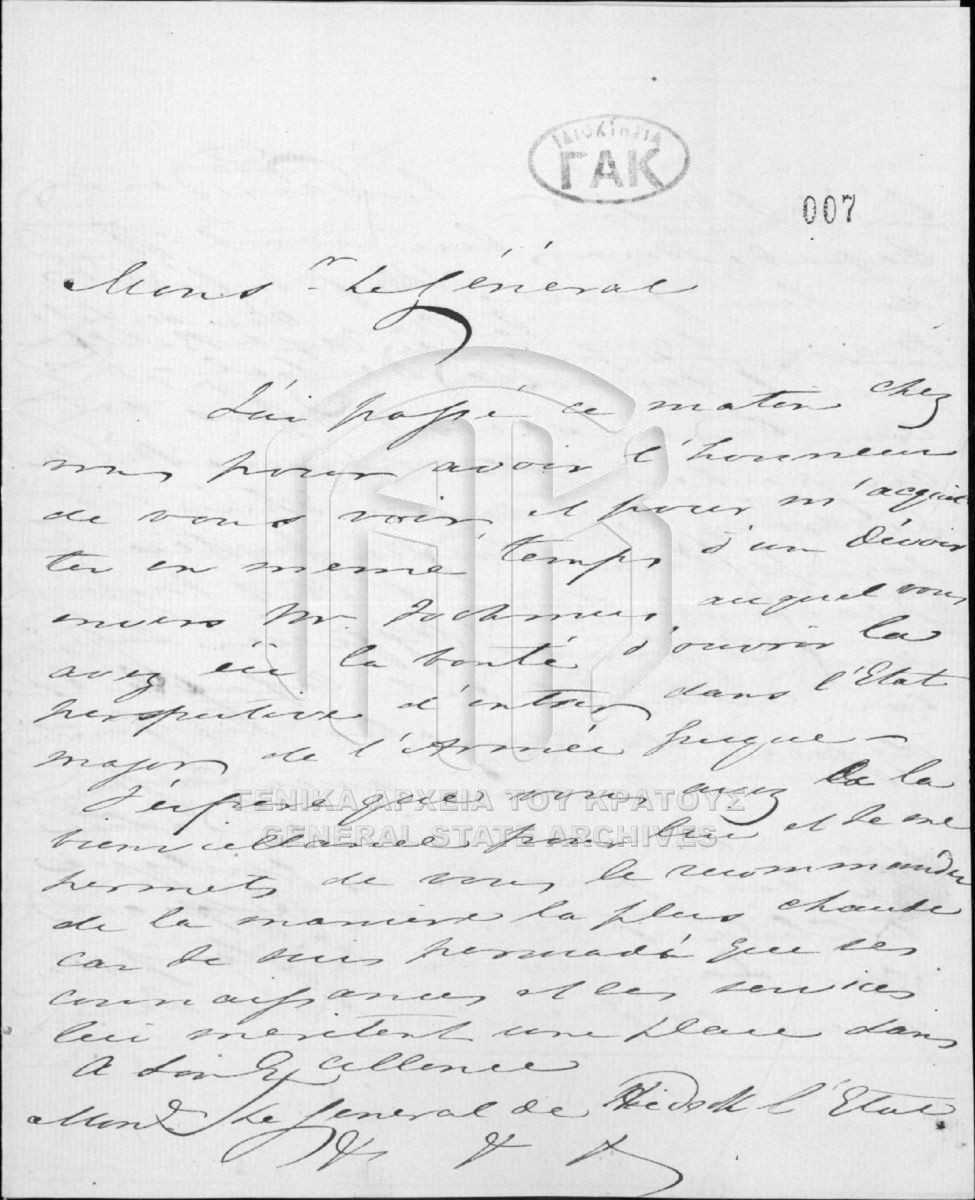 ΙΔΙΟΚΤΗΣΙΑ
ΓΑΚ
007
Monsr. Le Général
J'ai passé ce matin chez
vous pour avoir l'honneur
de vous voir, et pour m'acquit
ter en meme temps d'un dévoir
envers Mr. Jochmus, auquel vous
avez eü la bonté d'ouvrir la
perspective d'entrer dans l'Etat
major de l'Armée grecque –
J'éspere que vous avez la
bienveillance pour lui et Je me
permets de vous le recommander
de la maniere la plus chaude
car Je suis persuadé que ses
connaissances et ses services
lui meritent une place dans
A Son Excellence
Monsr. Le General de Heideck l'Etat
& & &
ΓΕΝΙΚΑ ΑΡΧΕΙΑ ΤΟΥ ΚΡΑΤΟΥΣ
GENERAL STATE ARCHIVES